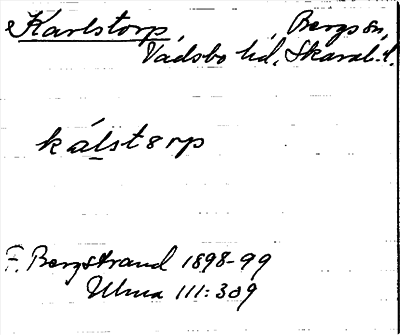 Karlstorp, Bergs sn,
Vadsbo hd, Skarab. l.
kálstorp
F. Bergstrand 1898-99
Ulma 111:309